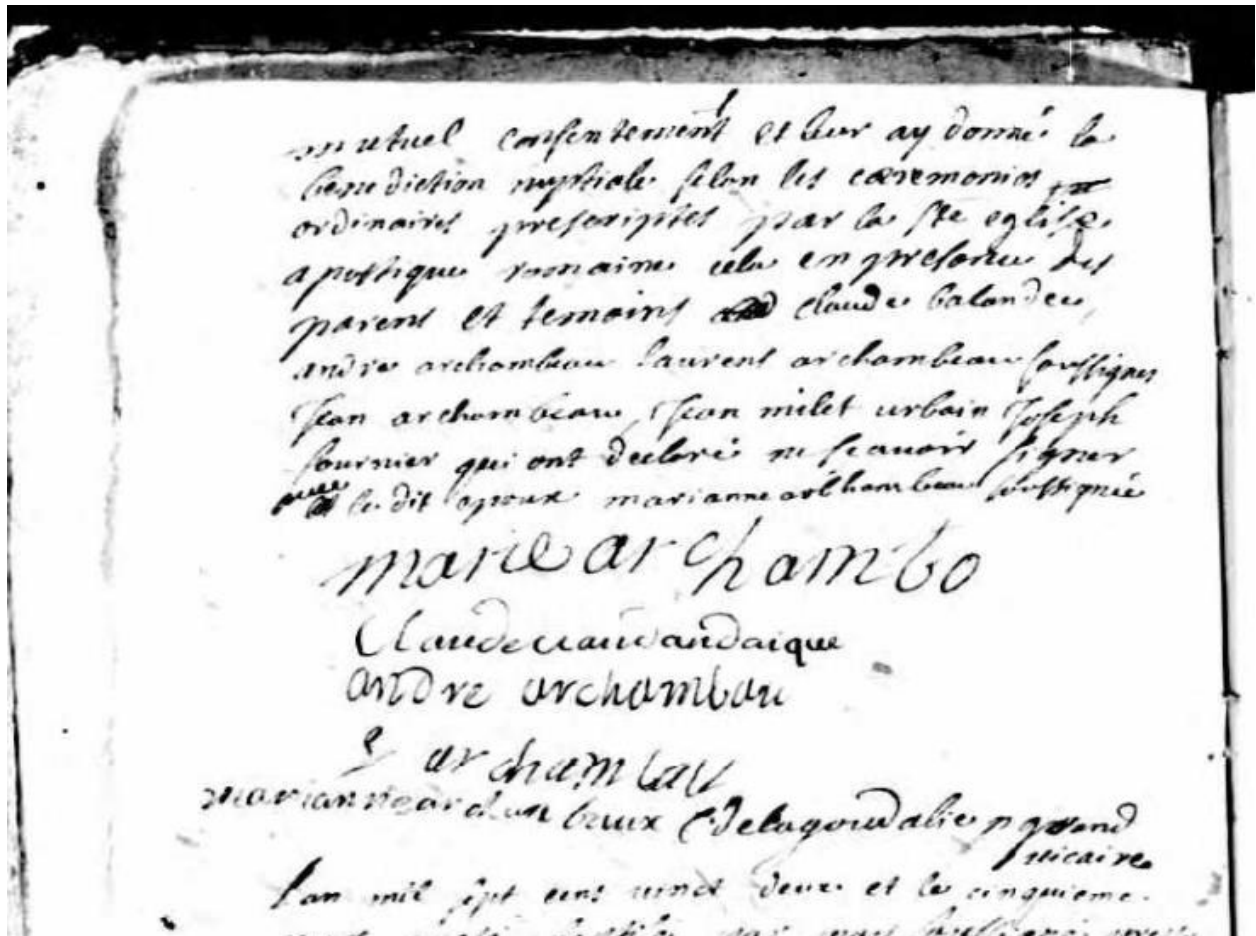 mutuel consentement et leur ay donné la
benediction nuptiale selon les cœremonies
ordinaires prescriptes par la ste eglise
apostique romaine cela en presence des
parens et temoins claude balande
andre archambeau laurent archambeau soussignes
Jean archambeau, Jean milet urbain Joseph
fournier qui ont declaré ne scavoir signer
avec le dit epoux marianne archambeau soussignée
marie archambo
Claude andaique
andre archambau
archambau
mariannearchanbaux Cdelagoudalie p grand
vicaire
l'an mil sept cens vinct deux et le cinquieme